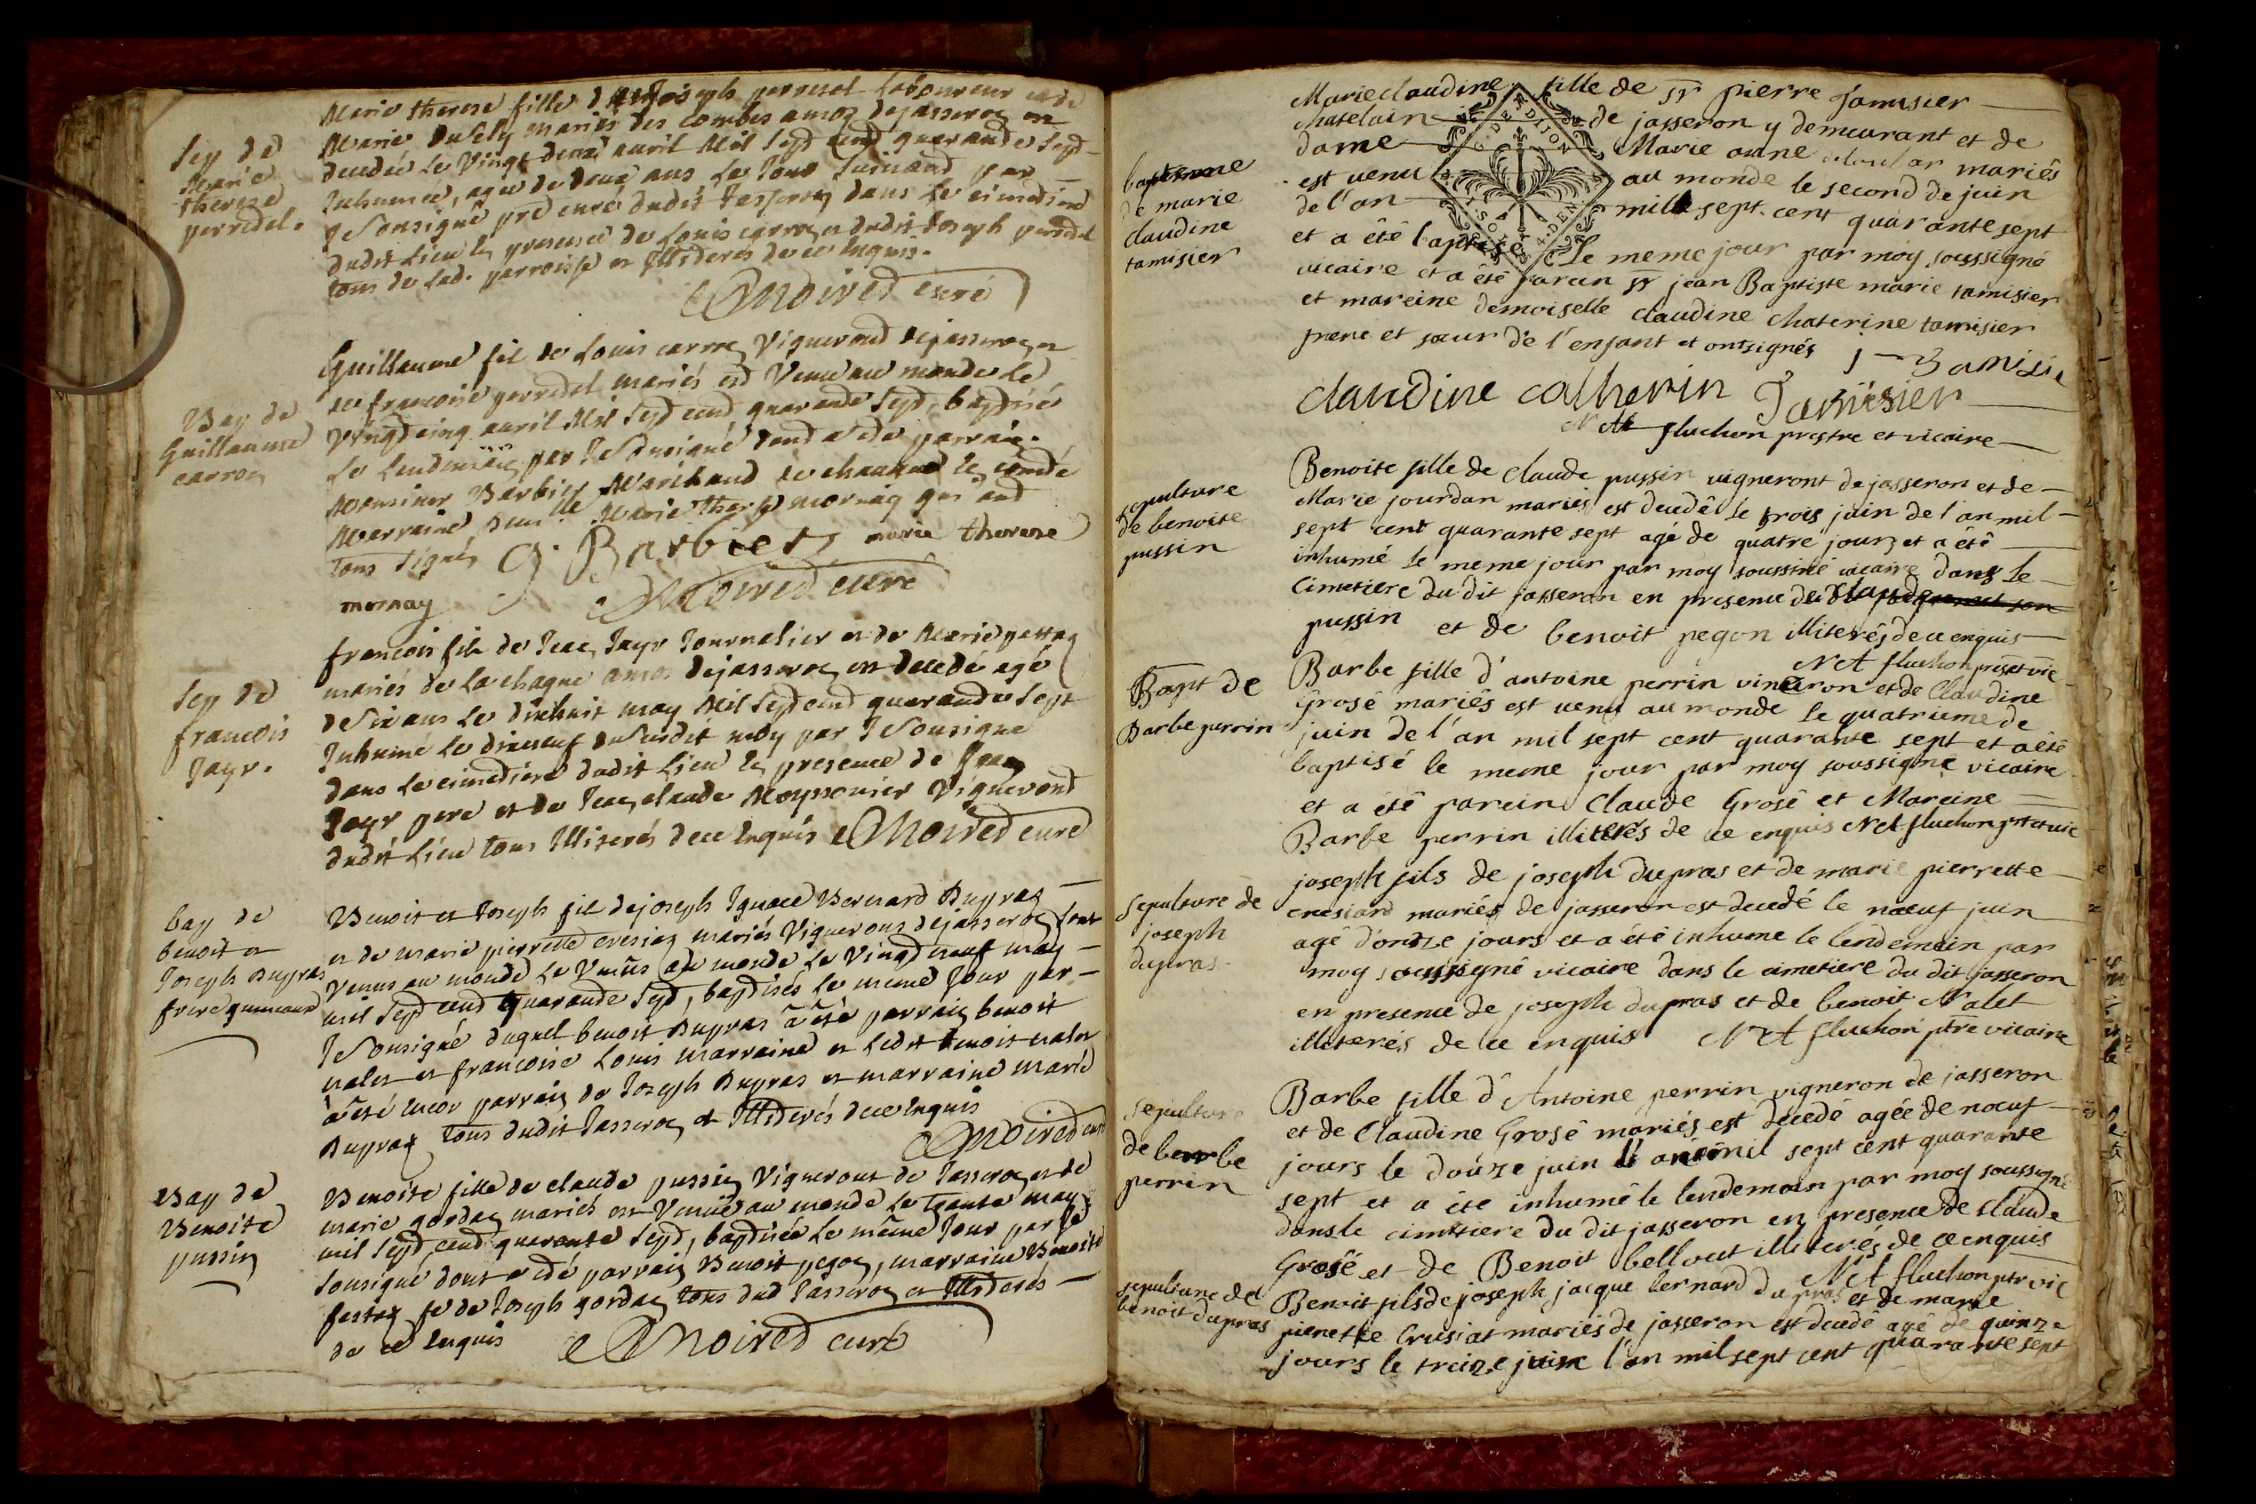 Sep de
Marie
therese
perredel.
Marie therese fille de Joseph perredel Laboureur et de
Marie mariés des combes amoz dejasseron est
decedée le Vingt deux avril Mil Sept cend quarande Sept
Inhumée, agée de deux ans Le Jour Suivand par
Je Sousigné pre curé dudit Jasseron dans Le cimedierd
dudit Lieu En presence de Louis carron et dudit Joseph perredel
tous de Lad. parroisse et Illiderés de ce Enquis.
Moired curé
Bap de
Guillaumed
carron
Guillaumed fil de Louis carron Vignerond dejasseron et
de francoise perredel mariés esd Venu au monde le
Vingdcinq avril Mil Sept cend quarande Sept, baptisé
Le lendemain par Je Sousigné dond a édé parrain
Monsieur Barbier Marchand
Marraine Demlle Marie therese mornay qui ond
tous Signés G. Barbier marie therese
mornay Moired curé
Sep de
francois
Jayr.
francois fils de Jean Jayr Journalier et de Marie
mariés de La chaque amoz dejasseron est decedé agé
de Six ans Le dixhuit may Mil Sept cend quarande Sept
Inhumé Le dixneuf du Susdit may par Je Sousigné
dans Le cimedierd dudit Lieu En presence de Jean
Jayr pere et de Jean claude Moyssonier Vignerond
dudit Lieu tous Illiterés de ce Enquis Moired curé
bap de
benoit et
Joseph Dupras
frere gumeaux
Benoit et Joseph fil dejoseph Ignace Bernard Dupras
et de marie pierrette cresiaz mariés Vignerons dejasseron Sont
Venus au monde Le Vingdneuf may
mil Sept cend quarande Sept, baptisés Le meme Jour par
Je Sousigné duquel benoit Dupras a été parrain benoit
nalet et francoise Louis marraine et Ledit benoit nalet
a été Encor parrain de Joseph Dupras et marraine marie
Dupras tous dudit Jasseron et Illiderés de ce Enquis
Moired curé
Bap de
Benoite
pussin
Benoite fille de claude pussin Vigneront de Jasseron et de
marie gordan mariés est Venuë au monde Le trente may
mil Sept cend quarante Sept, baptisée Le même Jour par Je
Sousigné dont a edé parrain Benoit pegon, marraine Benoite
fe de Joseph gordan tous dud Jasseron et Illiderés
de ce Enquis Moired curé
baptesme
de marie
claudine
tamisier
Marie claudine fille de sr pierre Tamisier
chatelain de jasseron y demeurant et de
dame Marie anne mariés
est venu au monde le second de juin
de l'an mill sept cent quarante sept
et a été baptisé Le meme jour par moy soussigné
vicaire et a été parein sr jean Baptiste marie tamisier
et mareine demoiselle claudine chaterine tamisier
frere et sœur de l'enfant et ont signés J B Tamisie
claudine catherin Tamisier
N A fluchon prestre et vicaire
sepulture
de benoite
pussin
Benoite fille de claude pussin vigneront de jasseron et de
Marie jourdan mariés est decedé le trois juin de l'an mil
sept cent quarante sept agé de quatre jours et a été
inhumé le meme jour par moy soussiné vicaire dans le
Cimetiere du dit jasseron en presence de claude
pussin et de benoit pegon illiterés de ce enquis
N A fluchon pre et vic
Bapt de
Barbe perrin
Barbe fille d'antoine perrin vineron et de Claudine
Grosé mariés est venu au monde le quatrieme de
juin de l'an mil sept cent quarante sept et a été
baptisé le meme jour par moy soussigné vicaire
et a été parein Claude Grosé et Mareine
Barbe perrin illiterés de ce enquis N A fluchon ptre et vic
sepulture de
joseph
dupras
joseph fils de joseph dupras et de marie pierrette
cresiard mariés de jasseron est decedé le nœuf juin
agé d'ontze jours et a été inhumé le lendemain par
moy soussigné vicaire dans le cimetiere du dit jasseron
en presence de joseph dupras et de benoit Nalet
illiterés de ce enquis N A fluchon ptre vicaire
sepulture
de barbe
perrin
Barbe fille d'Antoine perrin vigneron de jasseron
et de Claudine Grosé mariés est decedé agée de nœuf
jours le douze juin mil sept cent quarante
sept et a été inhumé le lendemain par moy soussigné
dans le cimetiere du dit jasseron en presence de claude
Grosé et de Benoit bellouet illiterés de ce enquis
N A fluchon ptr vic
sepulture de
benoit dupras
Benoit fils de joseph jacque bernard dupras et de marie
pierrette Crusiat mariés de jasseron est decedé agé de quinze
jours le treize juin l'an mil sept cent quarante sept